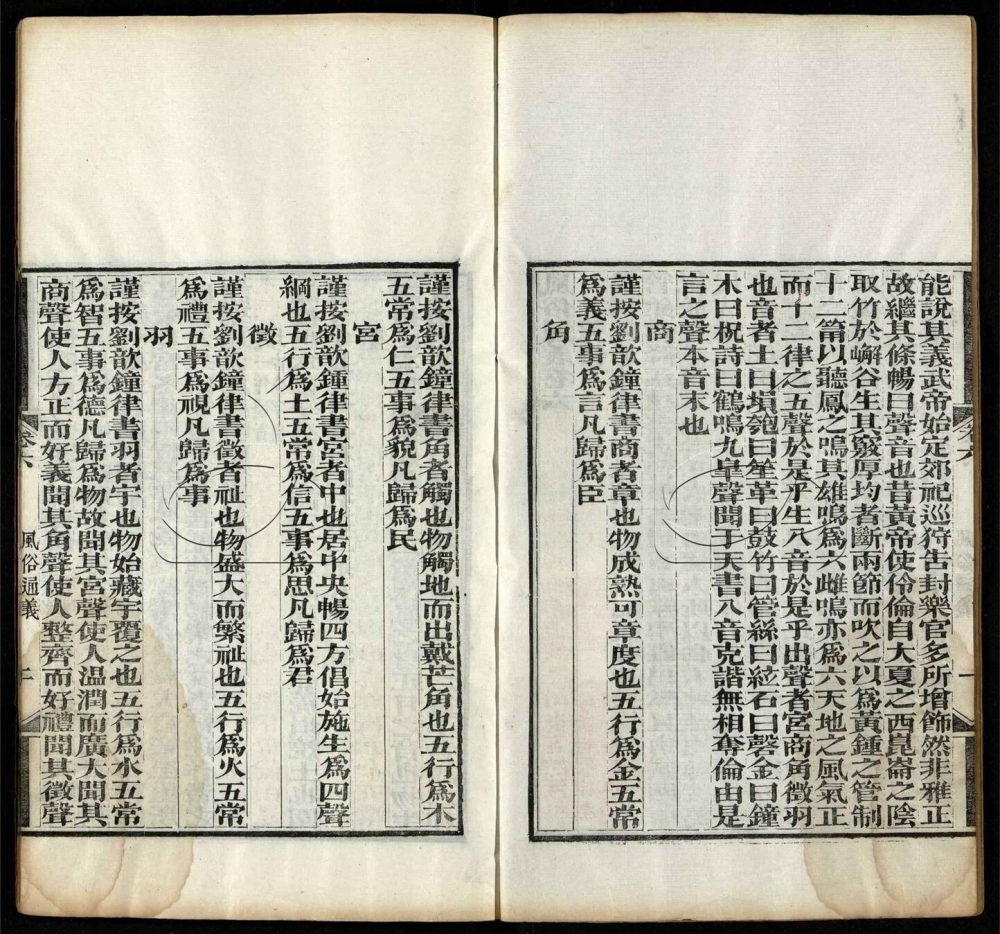 能說其義武帝始定郊祀巡狩告封樂官多所增飾然非雅正
故繼其條暢曰聲音也昔黃帝使伶倫自大夏之西崑崙之陰
取竹於嶰谷生其竅厚均者斷兩節而吹之以爲黃鍾之管制
十二筩以聽鳳之鳴其雄鳴爲六雌鳴亦爲六天地之風氣正
而十二律之五聲於是乎生八音於是乎出聲者宮商角徵羽
也音者土曰塤匏曰笙革曰鼓竹曰管絲曰絃石曰磬金曰鐘
木曰柷詩曰鶴鳴九臯聲聞于天書八音克諧無相奪倫由是
言之聲本音末也
商
謹按劉歆鐘律書商者章也物成熟可章度也五行爲金五常
爲義五事爲言凡歸爲臣
角
卷六
一
謹按劉歆鐘律書角者觸也物觸地而出戴芒角也五行爲木
五常爲仁五事爲貌凡歸爲民
宮
謹按劉歆鍾律書宮者中也居中央暢四方倡始施生爲四聲
綱也五行爲土五常爲信五事爲思凡歸爲君
徵
謹按劉歆鐘律書徵者祉也物盛大而繁祉也五行爲火五常
爲禮五事爲視凡歸爲事
羽
謹按劉歆鐘律書羽者宇也物始藏宇覆之也五行爲水五常
爲智五事爲德凡歸爲物故聞其宮聲使人温潤而廣大聞其
商聲使人方正而好義聞其角聲使人整齊而好禮聞其徵聲
卷六
風俗通義
二